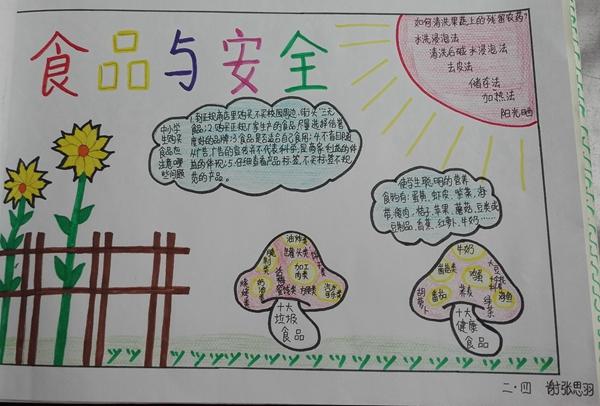 食品与安全
如何清洗果蔬上的残留农药?
水洗浸泡法
清洗后碱水浸泡法
去皮法
储存法
加热法
阳光晒
中小学
生购买
食品应
注意哪
些问题
1.到正规商店里购买,不买校园周边、街头"三无
食品;2.购买正规厂家生产的食品,尽量选择信誉
度好的品牌;3.食品是否适合自己食用;4.不盲目随
从广告,广告的宣传并不代表科学,是商家利益的体
5.仔细查看产品标签,不买标签不规
范的产品。
使学生聪明的营养
食物有:蛋黄、虾皮、紫菜、海
带、瘦肉、桔子、苹果、蘑菇、豆类或
豆制品、香蕉、红萝卜、牛奶……
油炸类
罐头类
加工
肉类
方便类
烧烤类
汽水
可乐类
十大
垃圾
食品
牛奶
菌菇类
鸡蛋
大豆
番茄
荞麦
海鱼
胡萝卜
绿茶
十大
健康
食品
二·四 谢张思羽